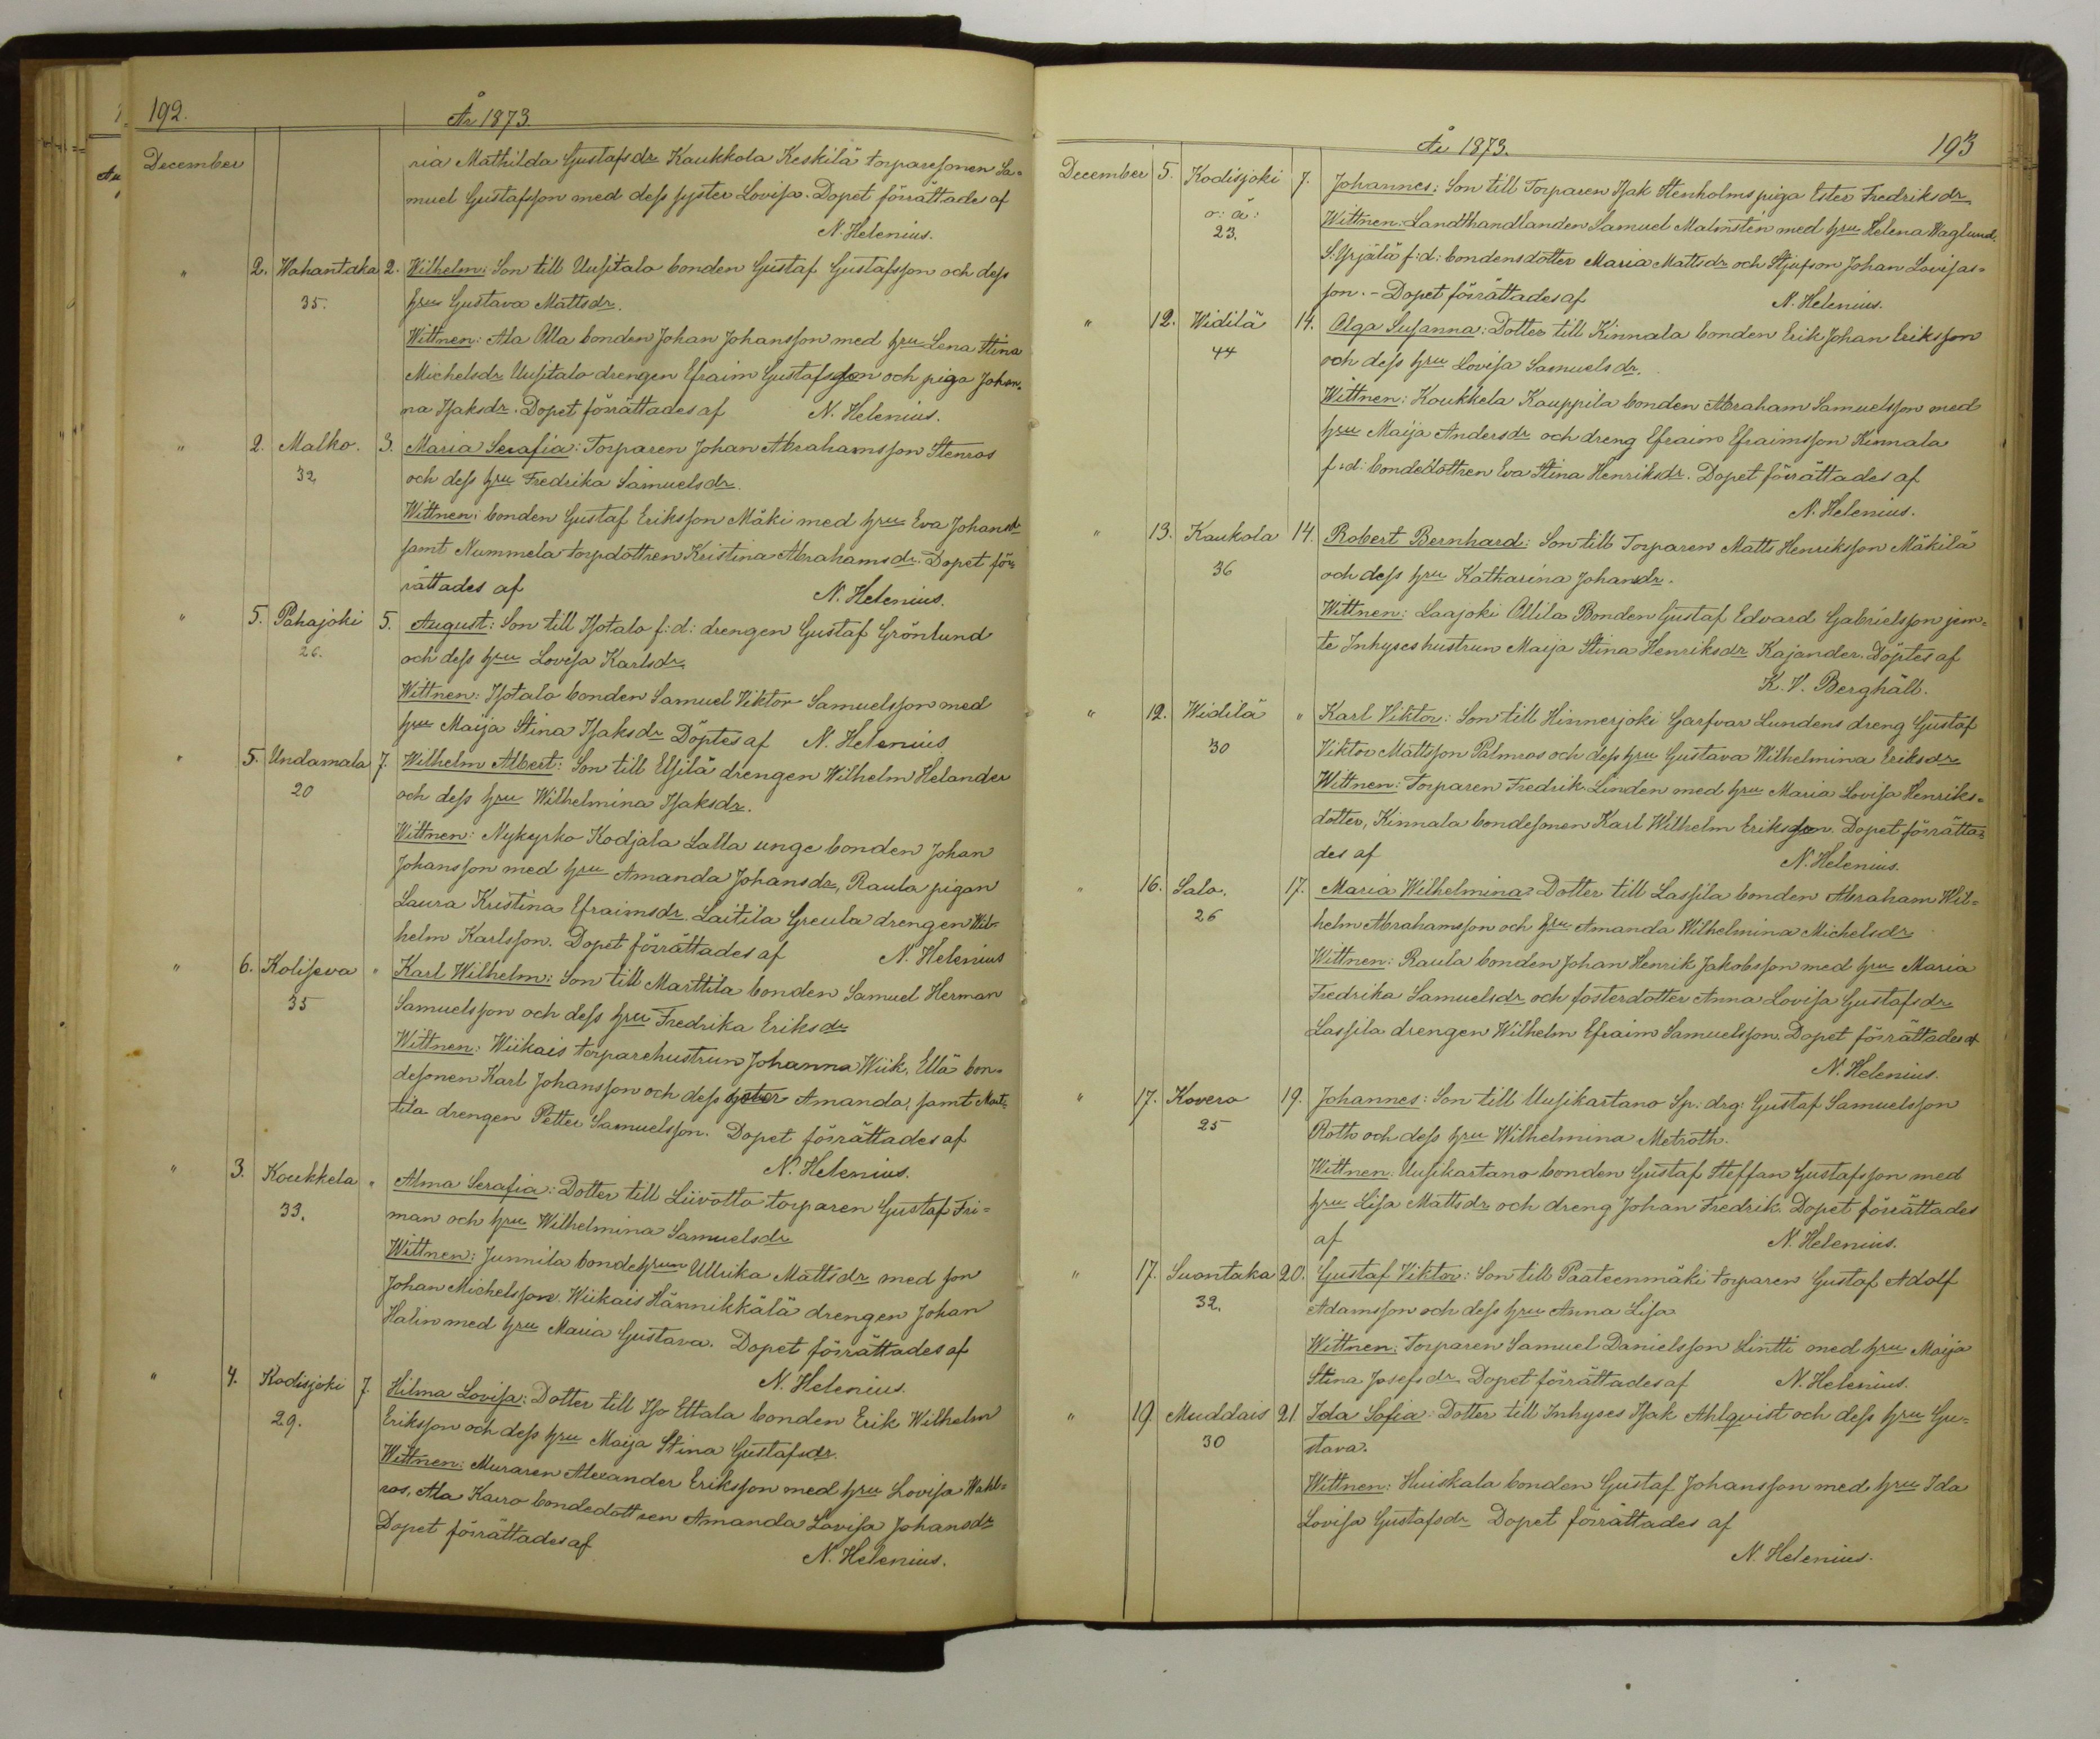 192.
År 1873.
December
ria Mathilda Gustafsdr Kaukkola Keskilä torparesonen Sa=
muel Gustafsson med dess syster Lovisa. Dopet förrättades af
N. Helenius.
" 2. Wahantaka 2. Wilhelm: Son till Uusitalo bonden Gustaf Gustafsson och dess
35. hru Gustava Mattsdr.
Wittnen: Ala Olla bonden Johan Johansson med hru Lena Stina
Michelsdr Uusitalo drengen Efraim Gustafsson och piga Johan=
na Isaksdr. Dopet förrättades af N. Helenius.
" 2. Malko. 3. Maria Serafia: Torparen Johan Abrahamsson Stenros
32. och dess hru Fredrika Samuelsdr.
Wittnen: bonden Gustaf Eriksson Mäki med hru Eva Johansdr
samt Nummela torpdottren Kristina Abrahamsdr. Dopet för=
rättades af N. Helenius.
" 5. Pahajoki 5. August: Son till Isotalo f:d: drengen Gustaf Grönlund
26. och dess hru Lovisa Karlsdr.
Wittnen: Isotalo bonden Samuel Viktor Samuelsson med
hru Maija Stina Isaksdr Döptes af N. Helenius
" 5. Undamala 7. Wilhelm Albert: Son till Elsilä drengen Wilhelm Helander
20 och dess hru Wilhelmina Isaksdr.
Wittnen: Nykyrko Kodjala Lalla unge bonden Johan
Johansson med hru Amanda Johansdr, Raula pigan
Laura Kristina Efraimsdr. Laitila Greula drengen Wil=
helm Karlsson. Dopet förrättades af N. Helenius
" 6. Koliseva " Karl Wilhelm: Son till Marttila bonden Samuel Herman
35 Samuelsson och dess hru Fredrika Eriksdr
Wittnen: Wiikais torparehustrun Johanna Wiik, Ellä bon=
desonen Karl Johansson och dess syster Amanda, samt Mart=
tila drengen Petter Samuelsson. Dopet förrättades af
N. Helenius.
" 3. Koukkela " Alma Serafia: Dotter till Liivotto torparen Gustaf Fri=
33. man och hru Wilhelmina Samuelsdr
Wittnen: Junnila bondehrun Ullrika Mattsdr med son
Johan Michelsson. Wiikais Hännikkälä drengen Johan
Halin med hru Maria Gustava. Dopet förrättades af
N. Helenius.
" 4. Kodisjoki 7. Hilma Lovisa: Dotter till Iso Ettala bonden Erik Wilhelm
29. Eriksson och dess hru Maija Stina Gustafsdr.
Wittnen: Muraren Alexander Eriksson med hru Lovisa Wahl=
ros, Ala Kairo bondedottren Amanda Lovisa Johansdr
Dopet förrättades af N. Helenius.
År 1873. 193
December 5. Kodisjoki 7. Johannes: Son till Torparen Isak Stenholms piga Ester Fredriksdr
o: ä: Wittnen: Landthandlanden Samuel Malmsten med hru Helena Waglund.
23. S: Yrjälä f:d: bondensdotter Maria Mattsdr och Stjufson Johan Lovisas=
son. – Dopet förrättades af N. Helenius.
" 12. Widilä 14. Olga Susanna: Dotter till Kinnala bonden Erik Johan Eriksson
44 och dess hru Lovisa Samuelsdr.
Wittnen: Koukkela Kauppila bonden Abraham Samuelsson med
hru Maija Andersdr och dreng Efraim Efraimsson Kinnala
f:d: bondedottren Eva Stina Henriksdr. Dopet förrättades af
N. Helenius.
" 13. Kaukola 14. Robert Bernhard: Son till Torparen Matts Henriksson Mäkilä
36 och dess hru Katharina Johansdr.
Wittnen: Laajoki Ollila Bonden Gustaf Edvard Gabrielsson jem=
te Inhyseshustrun Maija Stina Henriksdr Kajander. Döptes af
K. V. Berghäll.
" 12. Widilä " Karl Viktor: Son till Hinnerjoki Garfvar Lundens dreng Gustaf
30 Viktor Mattsson Palmros och dess hru Gustava Wilhelmina Eriksdr
Wittnen: Torparen Fredrik Linden med hru Maria Lovisa Henriks=
dotter, Kinnala bondesonen Karl Wilhelm Eriksson. Dopet förrätta=
des af N. Helenius.
" 16. Salo. 17. Maria Wilhelmina: Dotter till Lassila bonden Abraham Wil=
26 helm Abrahamsson och hru Amanda Wilhelmina Michelsdr
Wittnen: Raula bonden Johan Henrik Jakobsson med hru Maria
Fredrika Samuelsdr och fosterdotter Anna Lovisa Gustafsdr
Lassila drengen Wilhelm Efraim Samuelsson. Dopet förrättades af
N. Helenius.
" 17. Kovero 19. Johannes: Son till Uusikartano Sp: drg: Gustaf Samuelsson
25 Roth och dess hru Wilhelmina Metroth.
Wittnen: Uusikartano bonden Gustaf Steffan Gustafsson med
hru Lisa Mattsdr och dreng Johan Fredrik. Dopet förrättades
af N. Helenius.
" 17. Suontaka 20. Gustaf Viktor: Son till Paateenmäki torparen Gustaf Adolf
32. Adamsson och dess hru Anna Lisa
Wittnen: Torparen Samuel Danielsson Lintti med hru Maija
Stina Josefsdr Dopet förrättades af N. Helenius.
" 19 Muddais 21 Ida Sofia: Dotter till Inhyses Isak Ahlqvist och dess hru Gu=
30 stava.
Wittnen: Huiskala bonden Gustaf Johansson med hru Ida
Lovisa Gustafsdr Dopet förrättades af
N. Helenius.